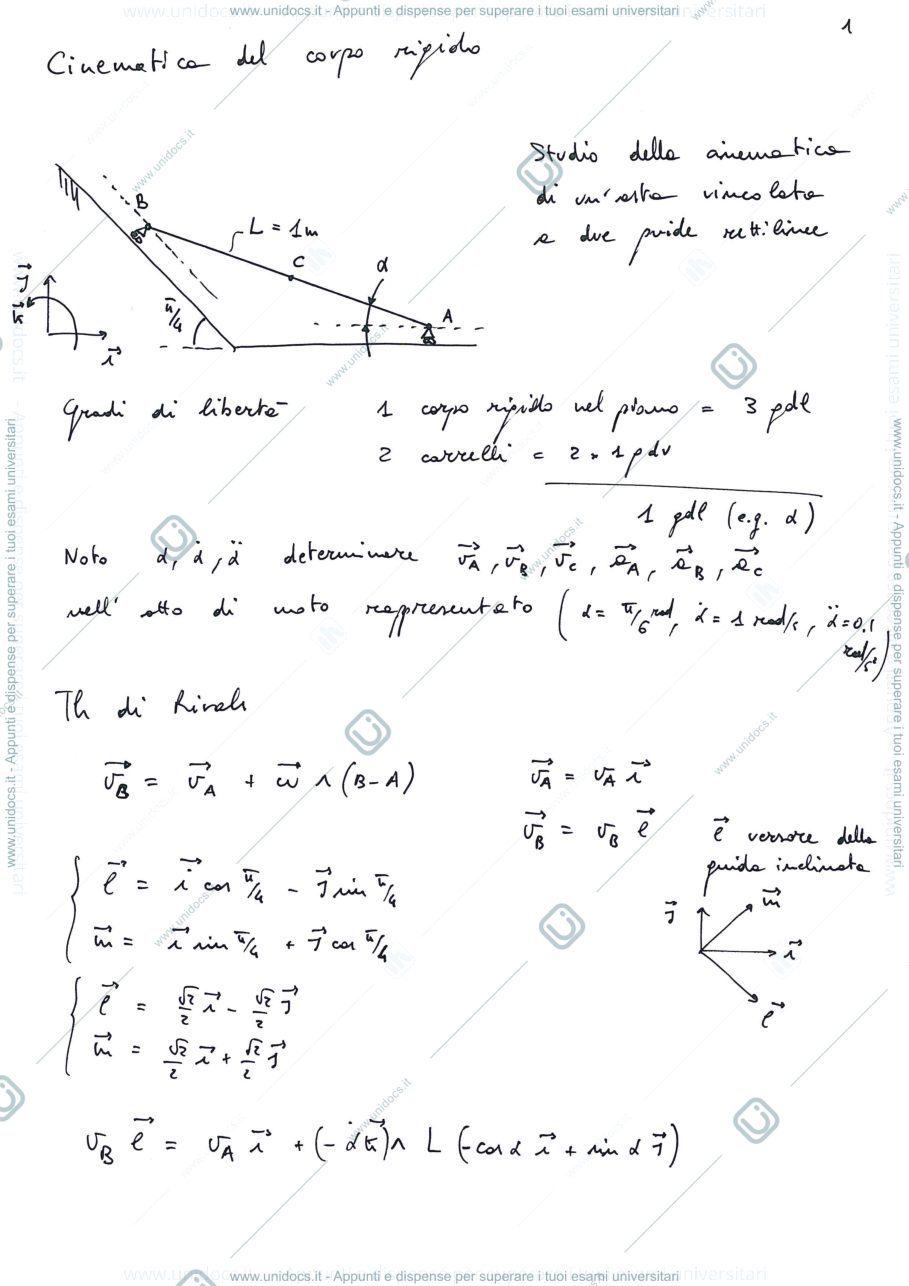 www.unidocs.it - Appunti e dispense per superare i tuoi esami universitari
1
Cinematica del corpo rigido
Studio della cinematica
di un'asta vincolata
a due guide rettilinee
B
L = 1m
C
α
A
π/4
j
k
i
Gradi di libertà 1 corpo rigido nel piano = 3 gdl
2 carrelli = 2 × 1 gdv
1 gdl (e.g. α)
Noto α, α̇, α̈ determinare v⃗A, v⃗B, v⃗C, a⃗A, a⃗B, a⃗C
nell'atto di moto rappresentato (α = π/6 rad, α̇ = 1 rad/s, α̈ = 0,1 rad/s²)
Th di Rivals
v⃗B = v⃗A + ω⃗ ∧ (B-A)
v⃗A = vA i⃗
v⃗B = vB e⃗
e⃗ versore della
guida inclinata
e⃗ = i⃗ cos π/4 - j⃗ sin π/4
m⃗ = i⃗ sin π/4 + j⃗ cos π/4
j⃗ m⃗ i⃗ e⃗
e⃗ = √2/2 i⃗ - √2/2 j⃗
m⃗ = √2/2 i⃗ + √2/2 j⃗
vB e⃗ = vA i⃗ + (-α̇ k⃗) ∧ L (-cos α i⃗ + sin α j⃗)
www.unidocs.it - Appunti e dispense per superare i tuoi esami universitari